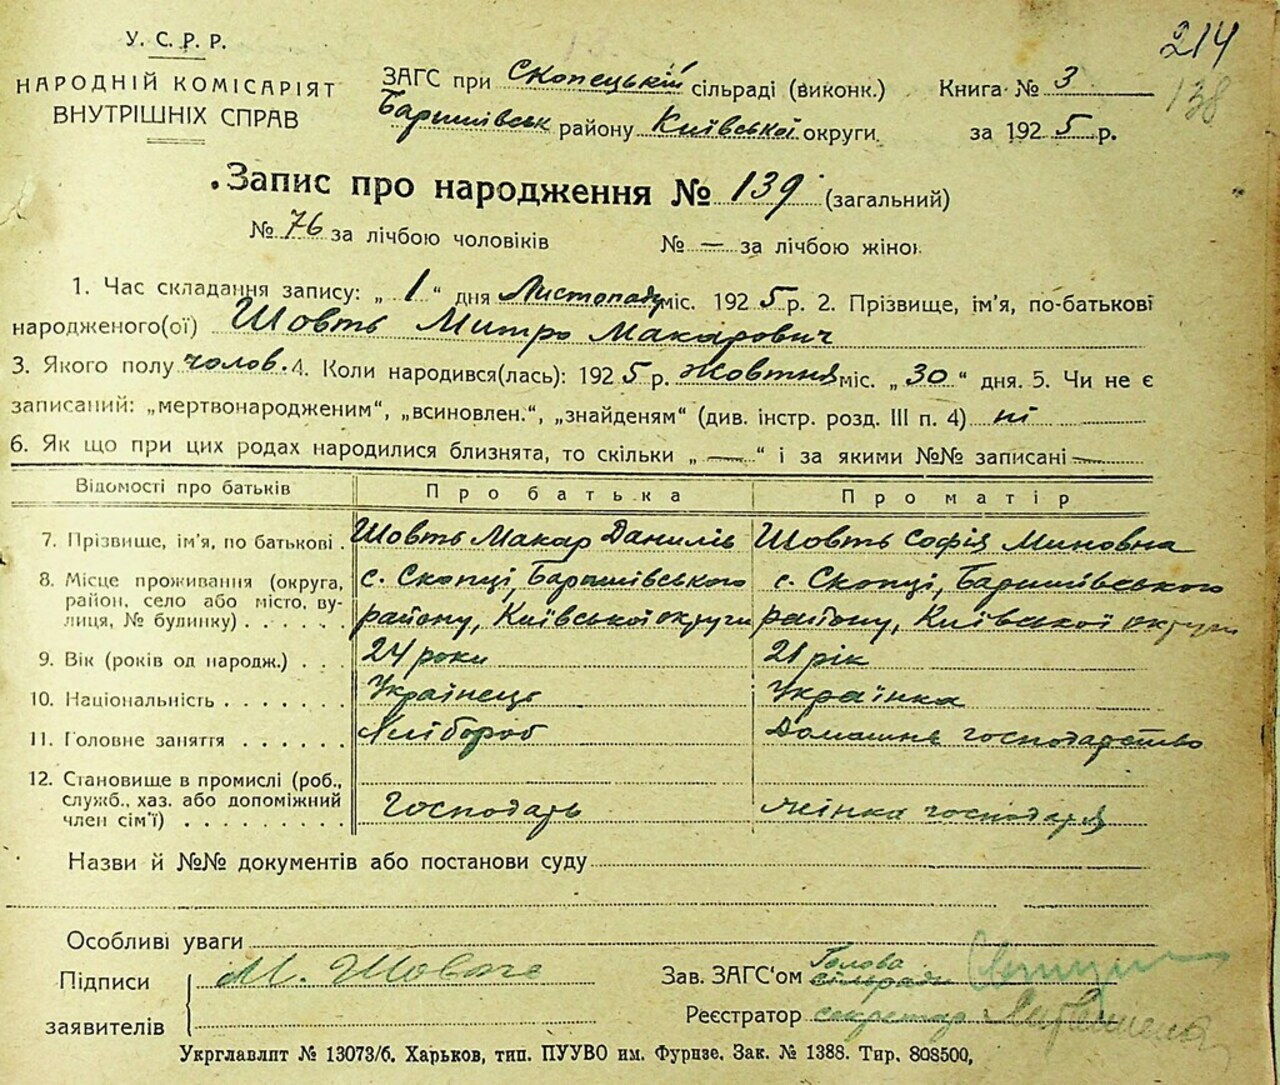 214
138
У. С. Р. Р.
НАРОДНІЙ КОМІСАРІЯТ
ВНУТРІШНІХ СПРАВ
ЗАГС при Скопецькій сільраді (виконк.) Книга № 3
Баришівськ району Київської округи. за 1925 р.
Запис про народження № 139 (загальний)
№ 76 за лічбою чоловіків № — за лічбою жінок
1. Час складання запису: „ 1 “ дня Листопаду міс. 1925 р. 2. Прізвище, ім'я, по-батькові
народженого(ої) Шовть Митро Макарович
3. Якого полу чолов. 4. Коли народився(лась): 1925 р. Жовтня міс. „ 30 “ дня. 5. Чи не є
записаний: „мертвонародженим“, „всиновлен.“, „знайденям“ (див. інстр. розд. III п. 4) ні
6. Як що при цих родах народилися близнята, то скільки „ — “ і за якими №№ записані —
Відомості про батьків Про батька Про матір
7. Прізвище, ім'я, по батькові . Шовть Макар Данилів Шовть Софія Миновна
8. Місце проживання (округа, с. Скопці, Баришівського с. Скопці, Баришівського
район, село або місто, ву-
лиця, № будинку) . . . . . району, Київської округи району, Київської округи
9. Вік (років од народж.) . . . 24 роки 21 рік
10. Національність . . . . . . . Українець Українка
11. Головне заняття . . . . . . Хлібороб Домашнє господарство
12. Становище в промислі (роб.,
служб., хаз. або допоміжний Господарь жінка господаря
член сім'ї) . . . . . . . . .
Назви й №№ документів або постанови суду
Особливі уваги
Підписи М. Шовть Зав. ЗАГС'ом Голова сільради
заявителів Реєстратор секретар
Укрглавліт № 13073/б. Харьков, тип. ПУУВО им. Фрунзе. Зак. № 1388. Тир. 808500,